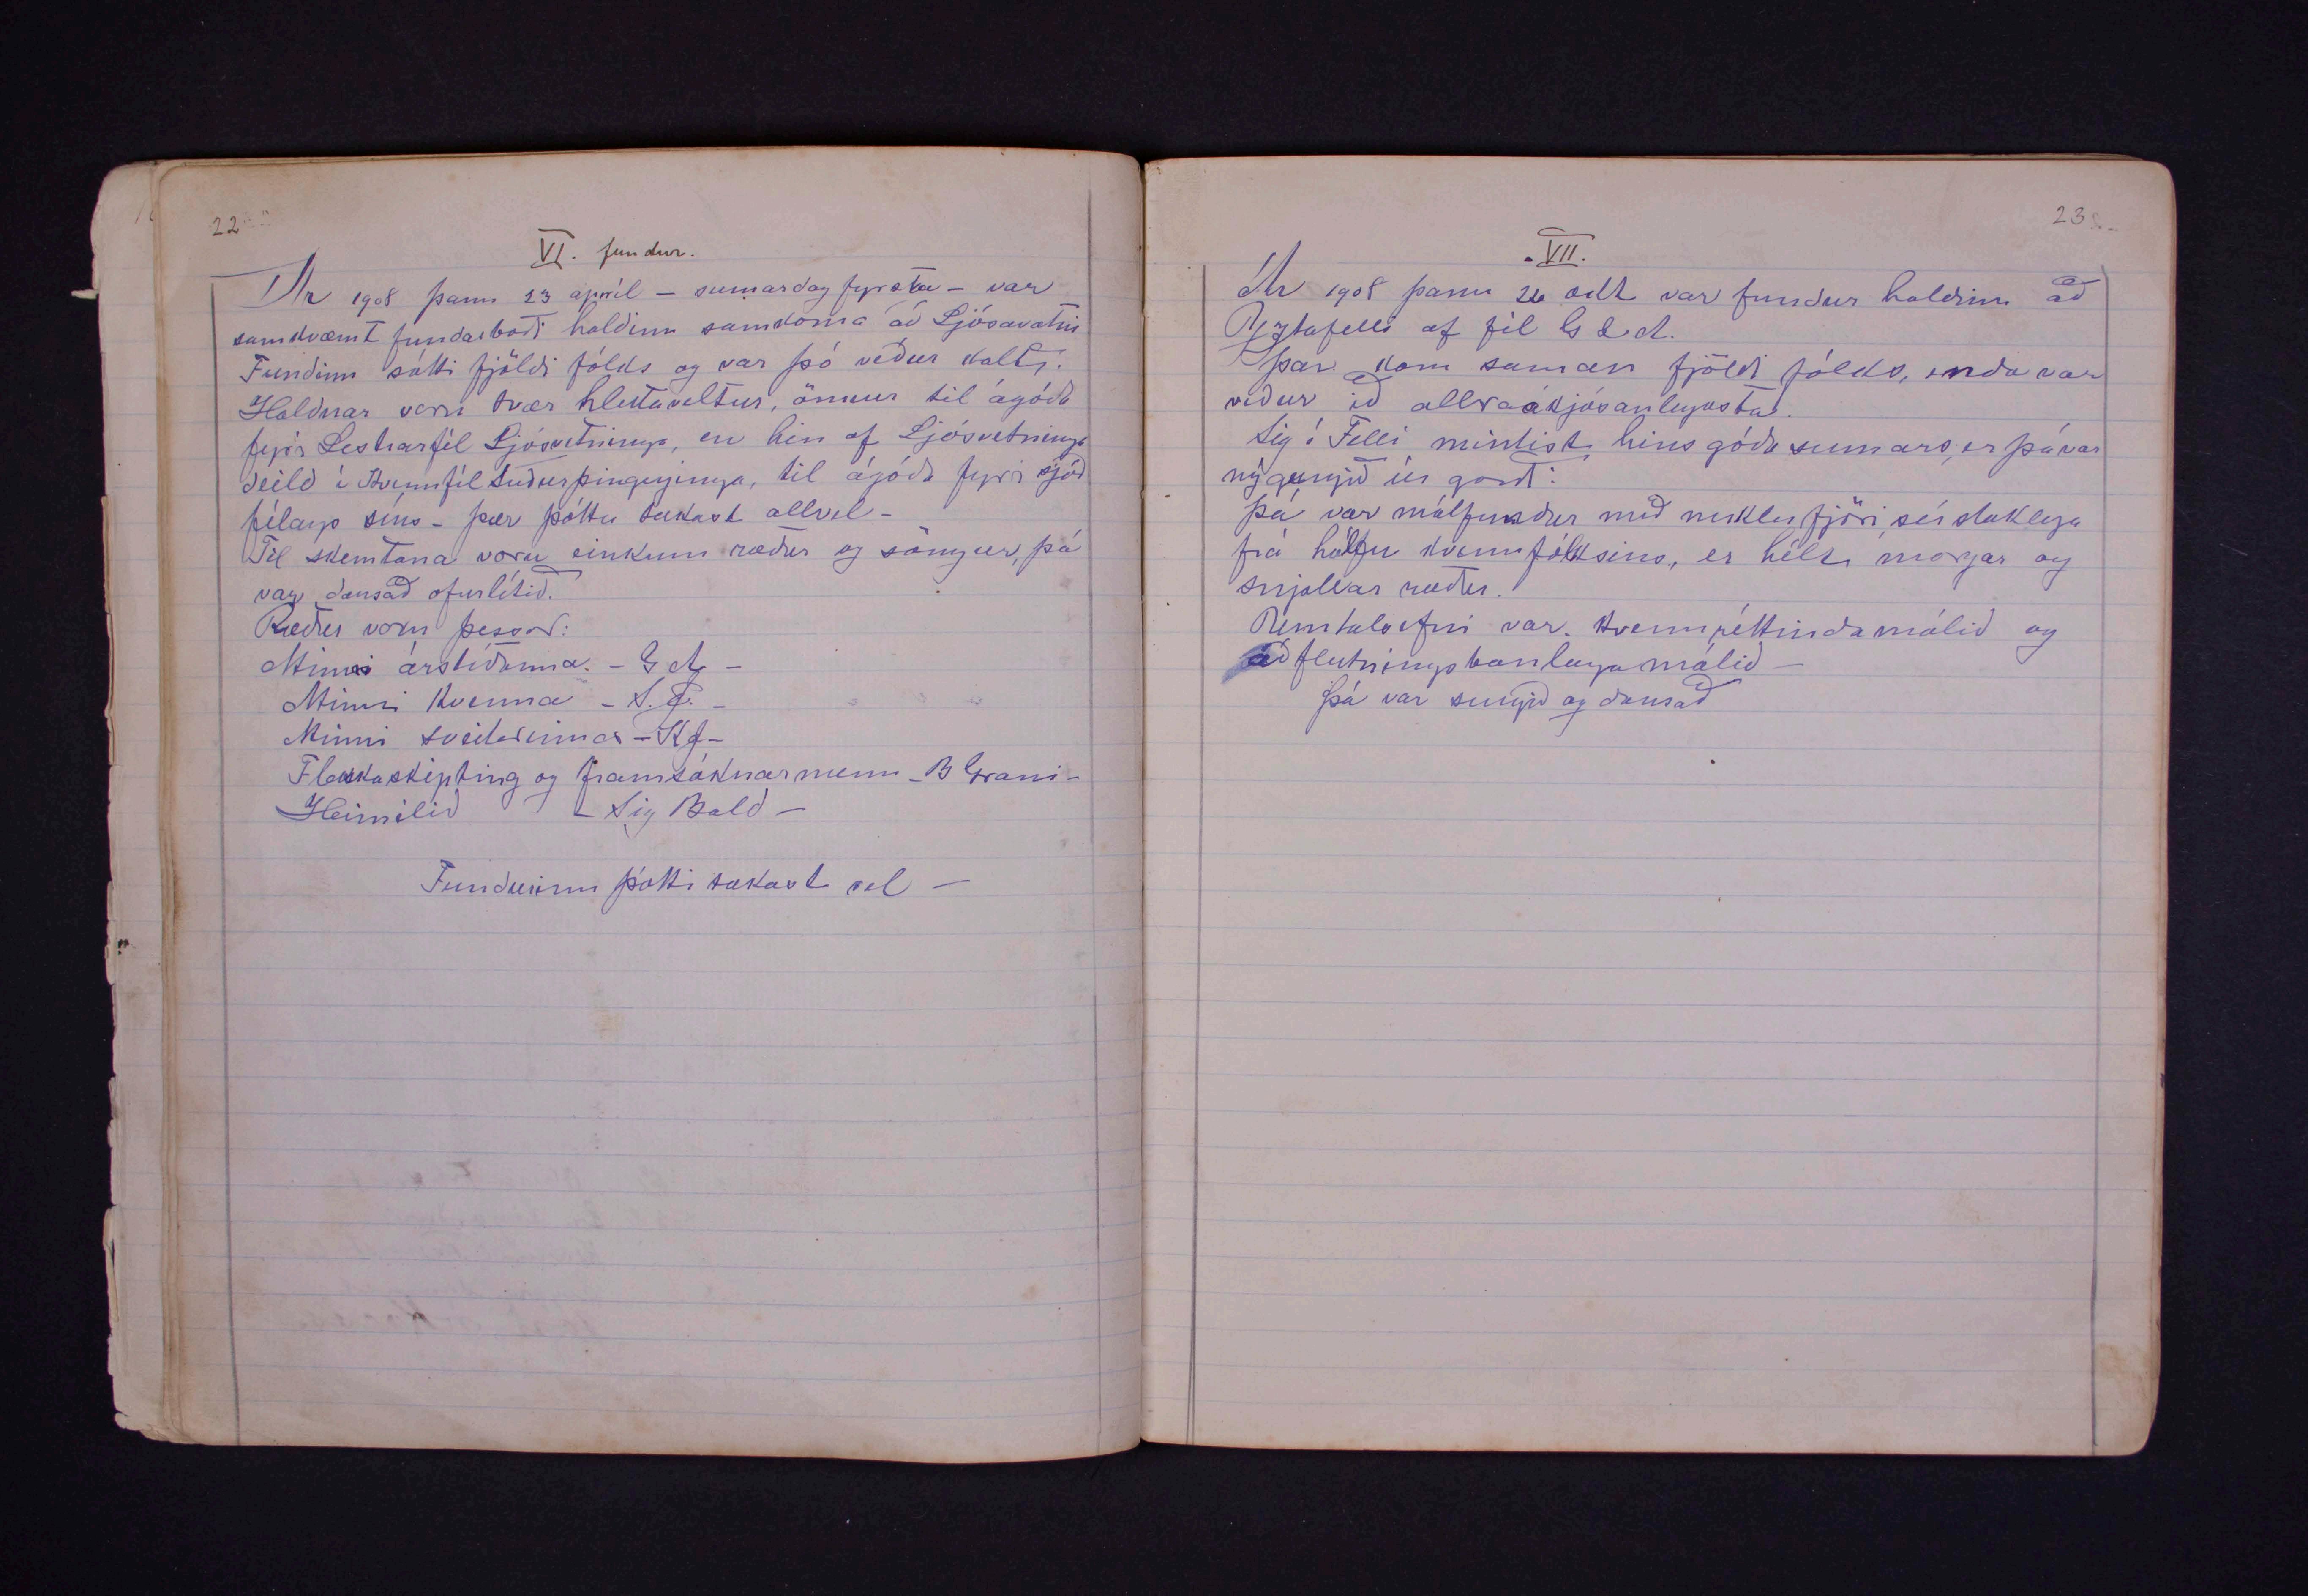 22
VI. fundur.
Ár 1908 þann 23 apríl – sumardag fyrsta – var
samkvæmt fundarboði haldinn samkoma að Ljósavatni
Fundinn sótti fjöldi fólks og var þó veður kalt.
Haldnar voru tvær hlutaveltur, önnur til ágóða
fyrir Lestrarfél Ljósvetninga, en hin af Ljósvetninga
deild í Kvennfél Suðurþingeyinga, til ágóða fyrir sjóð
félags síns – þær þóttu takast allvel –
Til skemtana voru einkum ræður og söngur, þá
var dansað ofurlítið.
Ræður voru þessar:
Minni árstíðanna. – G A –
Minni kvenna – S. F. –
Minni sveitarinnar – KJ –
Flokkaskipting og framsóknarmenn – B Grani –
Heimilið – Sig Bald –
Fundurinn þótti takast vel –
23
VII.
Ár 1908 þann 26 okt var fundur haldinn að
Yztafelli af fél G & A.
Þar kom saman fjöldi fólks, enda var
veður ið allra ákjósanlegasta.
Sig í Felli mintist hins góða sumars, er þá var
nýgengið úr garði:
Þá var málfundur með miklu fjöri sérstaklega
frá hálfu kvennfólksins, er hélt margar og
snjallar ræður.
Umtalsefni var. Kvennréttindamálið og
aðflutningsbannlagamálið –
Þá var sungið og dansað